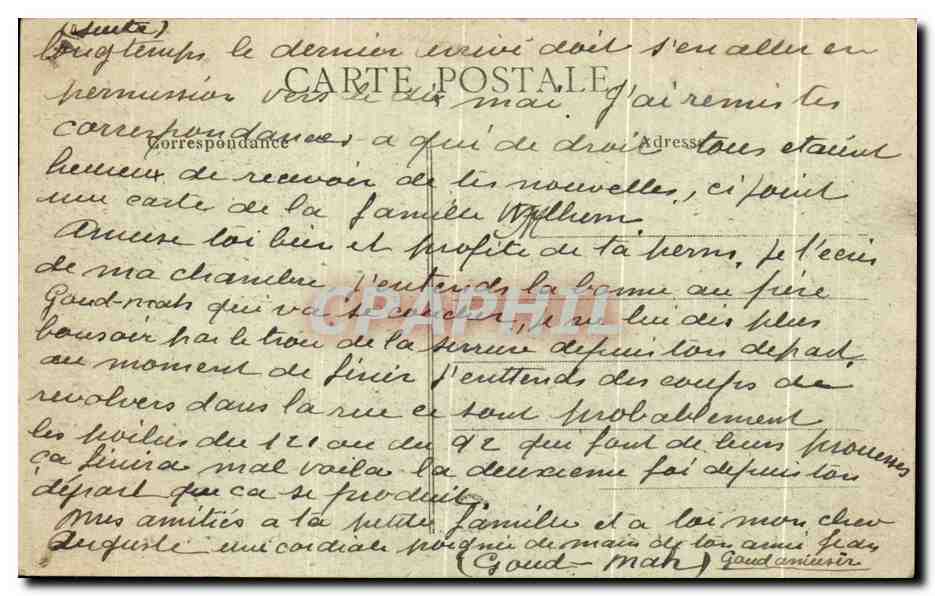 (suite)
longtemps le dernier arrivé doit s'en aller en
CARTE POSTALE
permission vers le dix mai J'ai remis tes
correspondances a qui de droit tous etaient
Correspondance Adresse
heureux de recevoir de tes nouvelles, ci joint
une carte de la famille
Amuse toi bien et profite de ta perm. je t'ecris
de ma chambre j'entends la bonne au père
CPAPHIL
Goud-mah qui va se coucher, je ne lui dis plus
bonsoir par le trou de la serrure depuis ton depart.
au moment de finir J'enttends des coups de
revolvers dans la rue ce sont probablement
les poilus du 121 ou du 92 qui font de leurs prouesses
ça finira mal voila la deuxieme foi depuis ton
départ que ca se produit.
Mes amitiés a ta petite famille et a toi mon cher
Auguste une cordiale poignée de main de ton ami Jean
(Goud-mah)